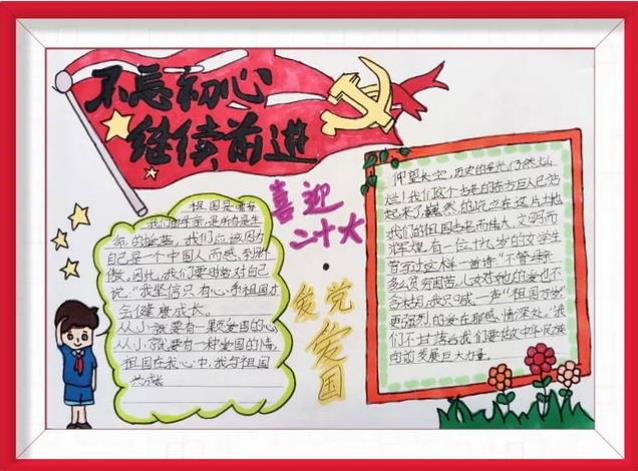 不忘初心
继续前进
喜迎
二十大
爱党
爱国
祖国是哺育
我们的母亲,是所有是生
命的摇篮,我们应该因为
自己是一个中国人而感到骄
傲。因此,我们要时常对自己
说:"我坚信只有心系祖国才
会健康成长。
从小就要有一颗爱国的心
从小就要有一种爱国的情
祖国在我心中,我与祖国
共成长
仰望长空,历史的星光仍然灿
烂!我们这个古老的东方巨人已站
起来了,巍然的屹立在这片土地
我们的祖国古老而伟大,文明而
辉煌,有一位十九岁的大学生
曾写过这样一首诗"不管母亲
多么贫穷困苦,儿女对她的爱也不
含糊,我只喊一声"祖国万岁
更强烈的爱在那感情深处。"我
们不甘落后我们要给中华民族
向前发展巨大力量。